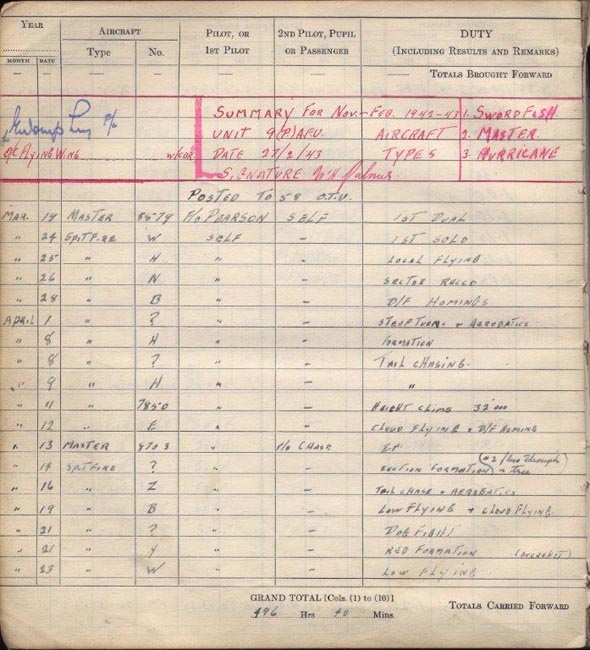 YEAR AIRCRAFT PILOT, OR 2ND PILOT, PUPIL DUTY
MONTH DATE Type No. 1ST PILOT OR PASSENGER (INCLUDING RESULTS AND REMARKS)
— — — — — — TOTALS BROUGHT FORWARD
SUMMARY FOR NOV-FEB. 1942-43 1. SWORDFISH
UNIT 9(P)AFU. AIRCRAFT 2. MASTER
OC FLYING WING W/CDR. DATE 27/2/43 TYPES 3. HURRICANE
SIGNATURE
POSTED TO 58 O.T.U.
MAR. 19 MASTER 8579 F/O PEARSON SELF 1ST DUAL
" 24 SPITFIRE W SELF — 1ST SOLO
" 25 " H " — LOCAL FLYING
" 26 " N " — SECTOR RECCO
" 28 " B " — D/F HOMINGS
APRIL 1 " ? " — STEEP TURNS + AEROBATICS
" 8 " H " — FORMATION
" 8 " ? " — TAIL CHASING.
" 9 " H " — "
" 11 " 7850 " — HEIGHT CLIMB 32'000
" 12 " E " — CLOUD FLYING + D/F HOMING
" 13 MASTER " F/O CHASE I.F.
" 14 SPITFIRE ? " — SECTION FORMATION (through tree)
" 16 " Z " — TAIL CHASE + AEROBATICS
" 19 " B " — LOW FLYING + CLOUD FLYING.
" 21 " ? " — DOG FIGHT
" 21 " Y " — FORMATION (OVERSHOT)
" 23 " W " — LOW FLYING
GRAND TOTAL [Cols. (1) to (10)]
496 Hrs 40 Mins. TOTALS CARRIED FORWARD